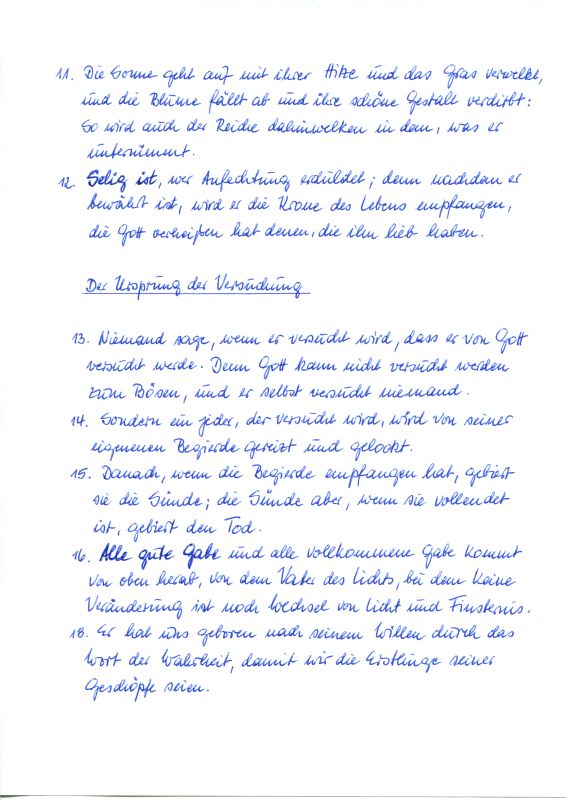 11. Die Sonne geht auf mit ihrer Hitze und das Gras verwelkt,
und die Blume fällt ab und ihre schöne Gestalt verdirbt:
So wird auch der Reiche dahinwelken in dem, was er
unternimmt.
12. Selig ist, wer Anfechtung erduldet; denn nachdem er
bewährt ist, wird er die Krone des Lebens empfangen,
die Gott verheißen hat denen, die ihn lieb haben.
Der Ursprung der Versuchung
13. Niemand sage, wenn er versucht wird, dass er von Gott
versucht werde. Denn Gott kann nicht versucht werden
zum Bösen, und er selbst versucht niemand.
14. Sondern ein jeder, der versucht wird, wird von seiner
eigenen Begierde gereizt und gelockt.
15. Danach, wenn die Begierde empfangen hat, gebiert
sie die Sünde; die Sünde aber, wenn sie vollendet
ist, gebiert den Tod.
16. Alle gute Gabe und alle vollkommene Gabe kommt
von oben herab, von dem Vater des Lichts, bei dem keine
Veränderung ist noch Wechsel von Licht und Finsternis.
18. Er hat uns geboren nach seinem Willen durch das
Wort der Wahrheit, damit wir die Erstlinge seiner
Geschöpfe seien.